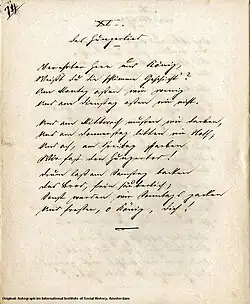 Das Hungerlied
Verehrter Herr und König,
Weißt du die schlimme Geschicht?
Am Montag aßen wir wenig
Und am Dienstag aßen wir nicht.
Und am Mittwoch mußten wir darben,
Und am Donnerstag litten wir Noth,
Und ach, am Freitag starben
Wir fast den Hungertod!
Drum laß am Samstag backen
Das Brod, fein säuberlich;
Sonst werden wir Sonntags packen
Und fressen, o König, dich!
Original: Autograph im International Institute of Social History, Amsterdam